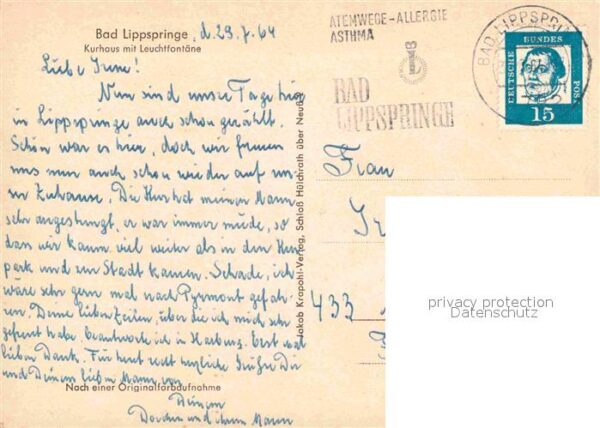 Bad Lippspringe, d. 29.7.64
Kurhaus mit Leuchtfontäne
Liebe Irene!
Nun sind unsere Tage hier
in Lippspringe auch schon gezählt.
Schön war es hier, doch wir freuen
uns nun auch schon wieder auf unser
Zuhause. Die Kur hat meinen Mann
sehr angestrengt, er war immer müde, so
dass wir kaum viel weiter als in den Kur
park und zur Stadt kamen. Schade, ich
wäre sehr gern mal nach Pyrmont gefah-
ren. Deine lieben Zeilen, über die ich mich sehr
gefreut habe, beantworte ich in Harburg. Erst mal
lieben Dank. Für heut recht herzliche Grüße Dir
und Deinem lieben Mann von
Nach einer Originalfarbaufnahme
Deinen
und ihrem Mann
Jakob Krapohl-Verlag, Schloß Hülchrath über Neuß
ATEMWEGE-ALLERGIE
ASTHMA
BAD
LIPPSPRINGE
BAD LIPPSPRINGE
DEUTSCHE BUNDESPOST
15
Frau
433
privacy protection
Datenschutz